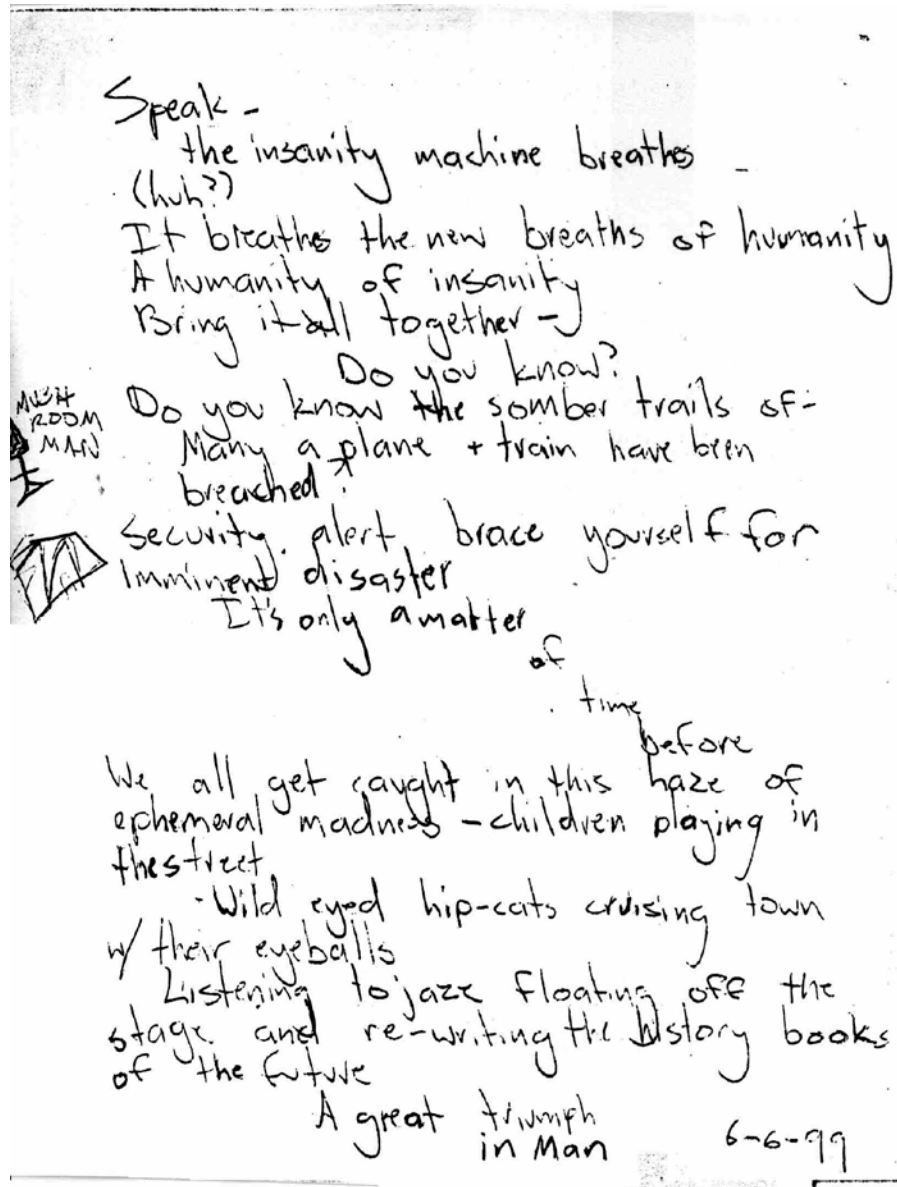 Speak -
the insanity machine breathes -
(huh?)
It breathes the new breaths of humanity
A humanity of insanity
Bring it all together -
Do you know?
MUSH
ROOM
MAN
Do you know the somber trails of -
Many a plane + train have been
breached!
Security alert brace yourself for
imminent disaster
It's only a matter
of
time
before
We all get caught in this haze of
ephemeral madness - children playing in
the street
- Wild eyed hip-cats cruising town
w/ their eyeballs
Listening to jazz floating off the
stage and re-writing the history books
of the future
A great triumph
in Man
6-6-99